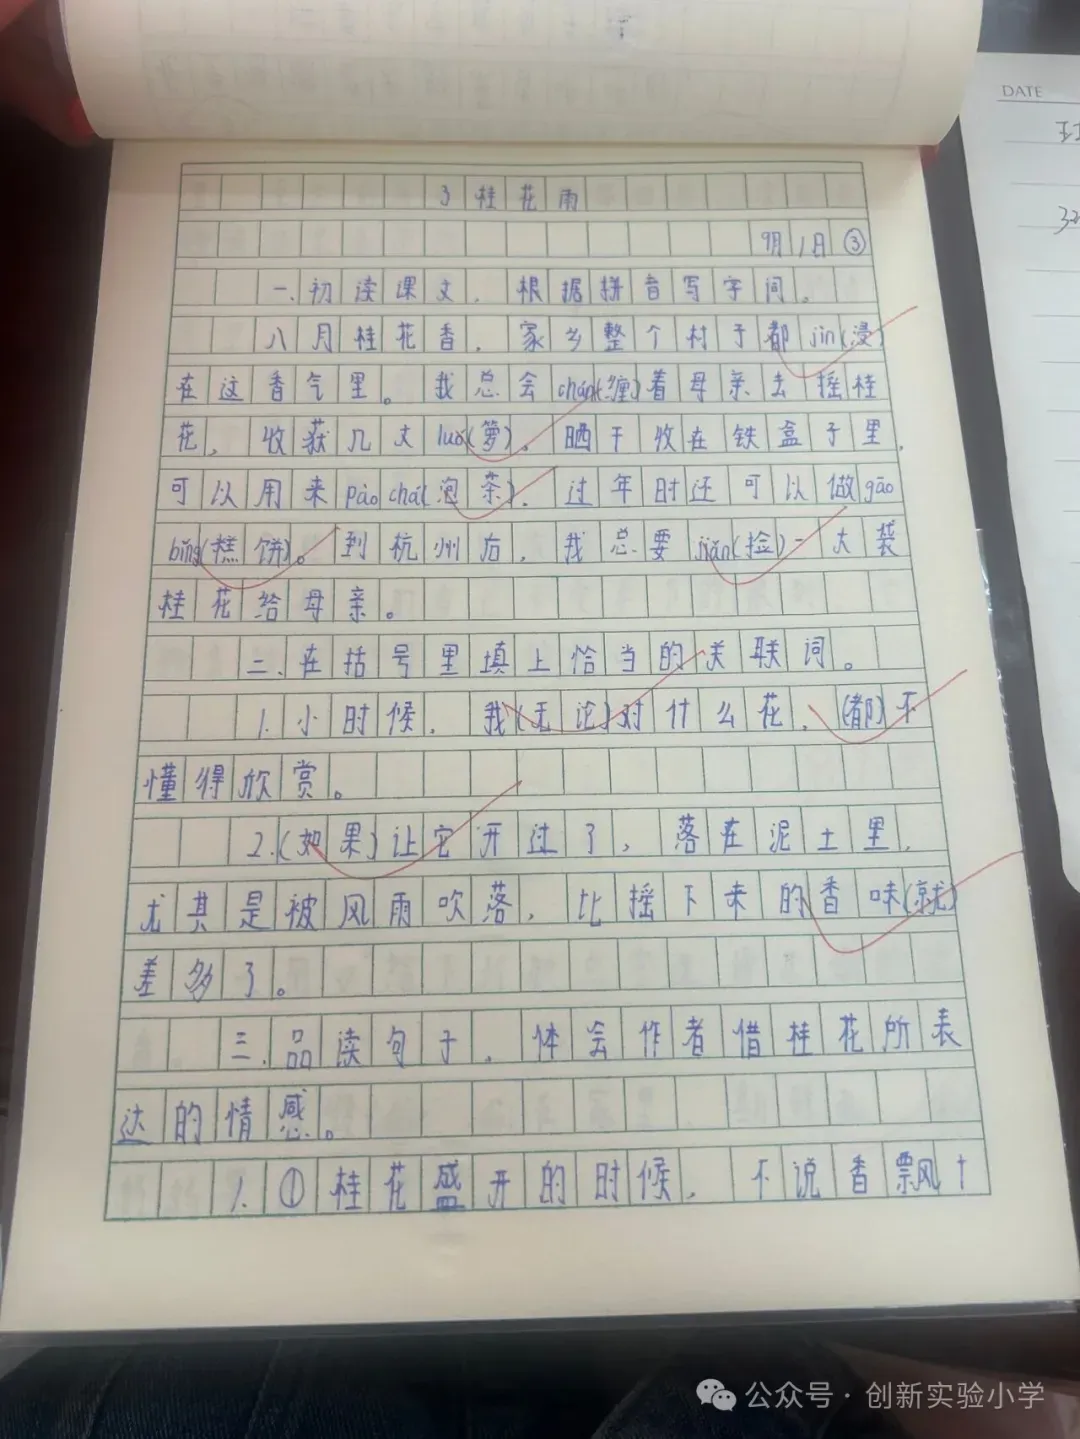 3 桂花雨
9月1日 ③
一、初读课文，根据拼音写字词。
八月桂花香，家乡整个村子都jìn(浸)
在这香气里。我总会chán(缠)着母亲去摇桂
花，收获几大luó(箩)。晒干收在铁盒子里，
可以用来pào chá(泡茶)，过年时还可以做gāo
bǐng(糕饼)。到杭州后，我总要jiǎn(捡)一大袋
桂花给母亲。
二、在括号里填上恰当的关联词。
1.小时候，我(无论)对什么花，(都)不
懂得欣赏。
2.(如果)让它开过了，落在泥土里，
尤其是被风雨吹落，比摇下来的香味(就)
差多了。
三、品读句子，体会作者借桂花所表
达的情感。
1.①桂花盛开的时候，不说香飘十
DATE
公众号·创新实验小学